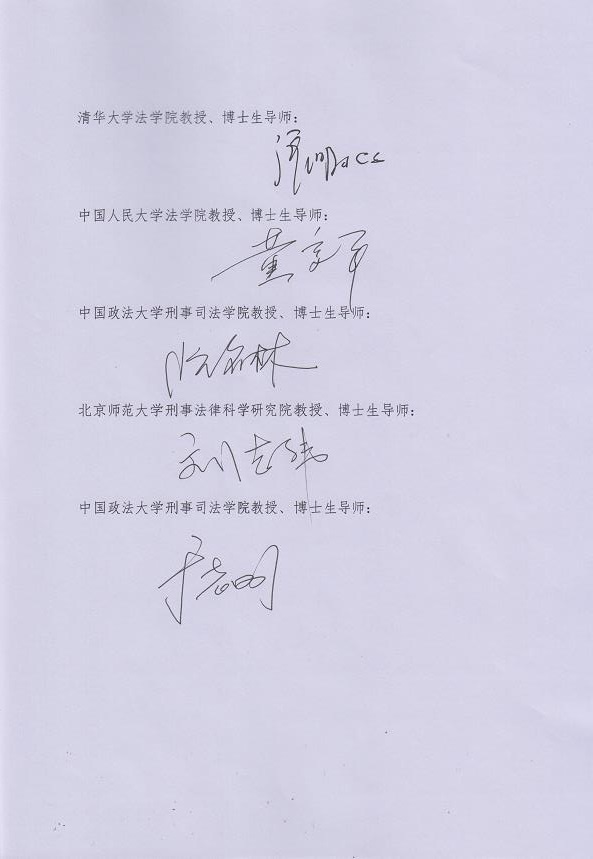 清华大学法学院教授、博士生导师:
中国人民大学法学院教授、博士生导师:
黄京平
中国政法大学刑事司法学院教授、博士生导师:
阮齐林
北京师范大学刑事法律科学研究院教授、博士生导师:
刘志伟
中国政法大学刑事司法学院教授、博士生导师:
于志刚